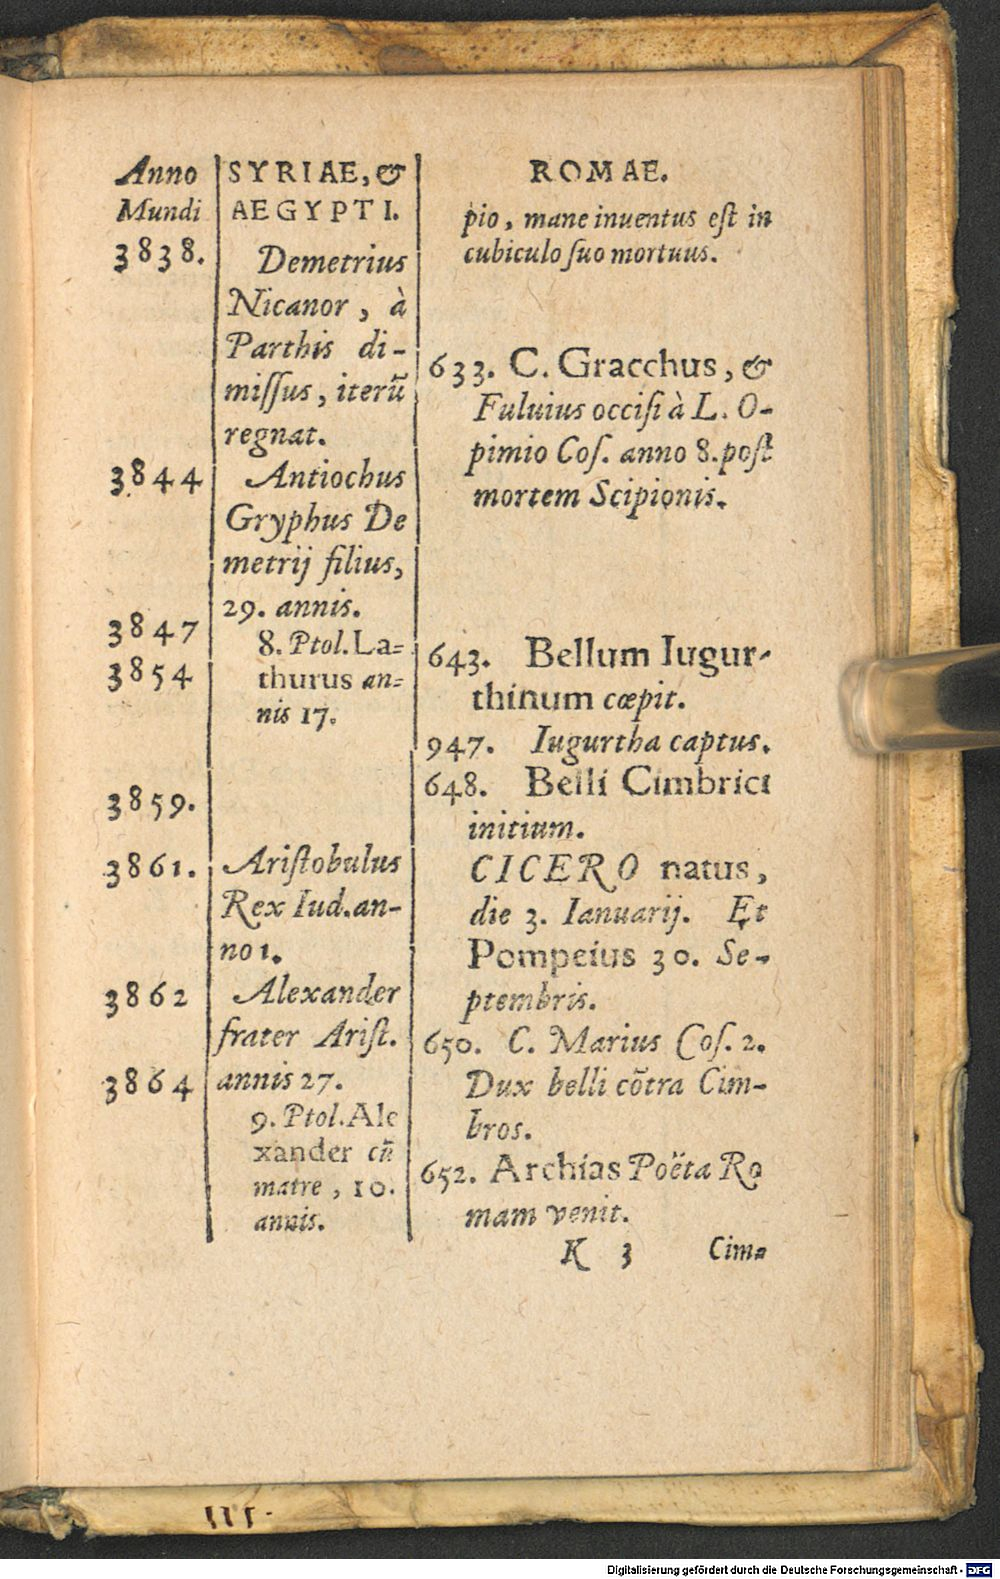 Anno
Mundi
3838.
3844
3847
3854
3859.
3861.
3862
3864
SYRIAE, &
AEGYPTI.
Demetrius
Nicanor, à
Parthis di-
miſſus, iterũ
regnat.
Antiochus
Gryphus De
metrij filius,
29. annis.
8. Ptol. La=
thurus an=
nis 17.
Ariſtobulus
Rex Iud. an-
no 1.
Alexander
frater Ariſt.
annis 27.
9. Ptol. Ale
xander cũ
matre, 10.
annis.
ROMAE.
pio, mane inuentus eſt in
cubiculo ſuo mortuus.
633. C. Gracchus, &
Fuluius occiſi à L. O-
pimio Coſ. anno 8. poſt
mortem Scipionis.
643. Bellum Iugur-
thinum cœpit.
947. Iugurtha captus.
648. Belli Cimbrici
initium.
CICERO natus,
die 3. Ianuarij. Et
Pompeius 30. Se-
ptembris.
650. C. Marius Coſ. 2.
Dux belli cõtra Cim-
bros.
652. Archias Poëta Ro
mam venit.
K 3 Cim-
Digitalisierung gefördert durch die Deutsche Forschungsgemeinschaft - DFG